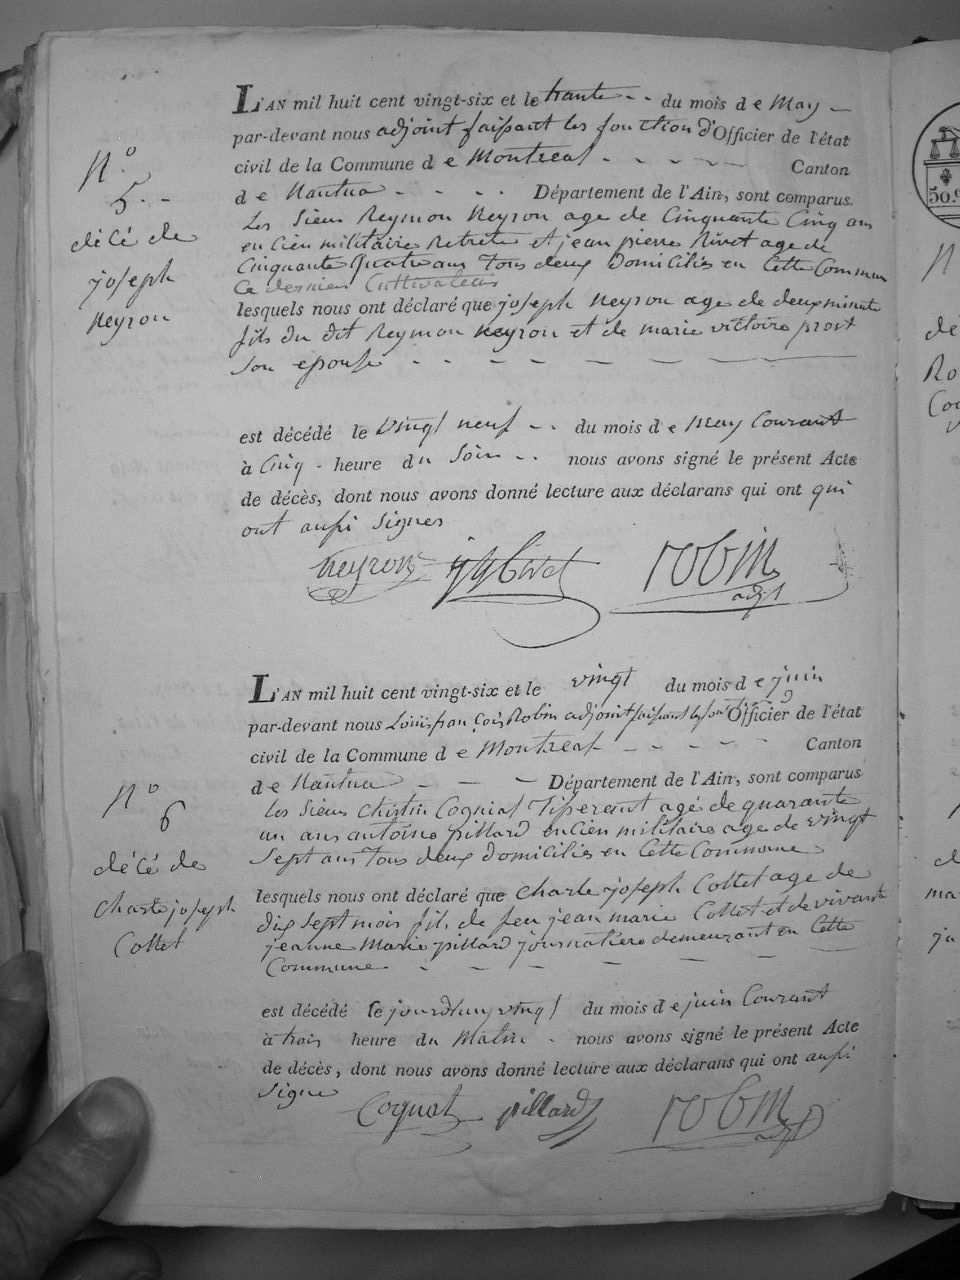 L'AN mil huit cent vingt-six et le trante - - du mois d e May -
par-devant nous adjoint faisant les fonction d'Officier de l'état
civil de la Commune d e Montreal - - - - - Canton
d e Nantua - - - - Département de l'Ain, sont comparus.
Les Sieur Reymon Neyron age de Cinquante Cinq ans
encien militaire Retrete et jean pierre Rivet age de
Cinquante Quatre ans Tous deux Domiciliés en Cette Commune
Ce dernier Cultivateur
lesquels nous ont déclaré que joseph Neyron age de deux minute
fils du dit Reymon Neyron et de marie victoire prost
Son epouse - - - - - - - -
N.º
5. -
décé de
joseph
Neyron
est décédé le Vingt neuf - - du mois d e May Courant
à Cinq - heure du Soir - - nous avons signé le présent Acte
de décès, dont nous avons donné lecture aux déclarans qui ont qui
ont aussi Signes
neyron Rivet robin
adjt
L'AN mil huit cent vingt-six et le vingt du mois d e juin
par-devant nous Louis françois Robin adjoint faisant les fon Officier de l'état
civil de la Commune d e Montreal - - - - - Canton
d e Nantua - - Département de l'Ain, sont comparus
Les Sieur Cognat Tisserant agé de quarante
un ans antoine pillard encien militaire age de vingt
Sept ans Tous deux Domiciliés en Cette Commune
lesquels nous ont déclaré que Charle joseph Collet age de
dix sept mois fils de feu jean marie Collet et de vivante
jeanne Marie pillard journaliere demeurant en Cette
Commune - - - - - - -
Nº
6
décé de
Charle joseph
Collet
est décédé le jourdhuy vingt du mois d e juin Courant
à trois heure du Matin - nous avons signé le présent Acte
de décès, dont nous avons donné lecture aux déclarans qui ont aussi
Signe
Cognat pillard robin
adjt
50.